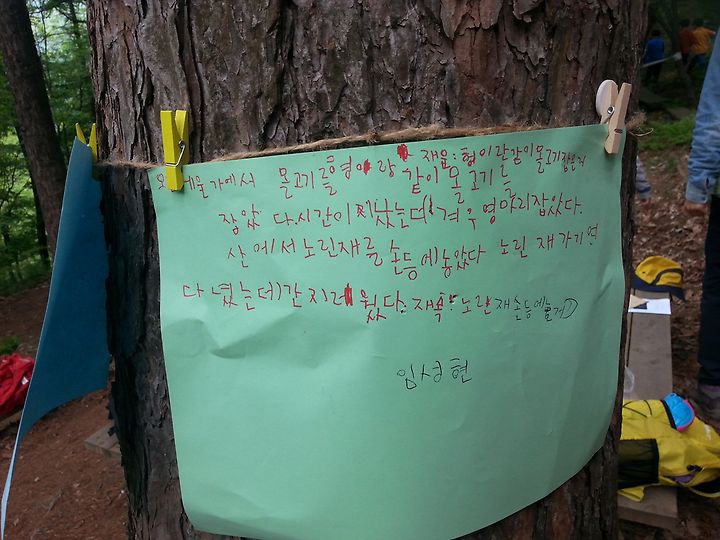 가에서 물고기를 형이랑 재윤: 형이랑같이물고기잡은거
같이 물고기를
잡았 다.시간이 지났는데 겨우 영마리잡았다.
산에서 노린재를 손등에놓았다 노린 재 가기 면
다녔는데)간지러 웠다. 제목: 노린재손등에놓기)
임성현